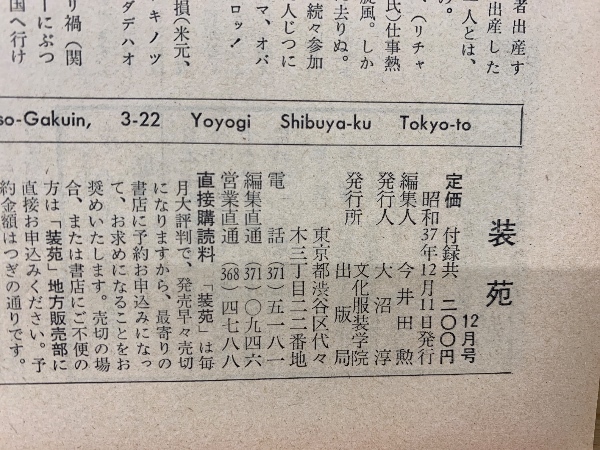 者出産す
出産した
一人とは、
め。
(リチャ
氏)仕事熱
旋風。しか
去りぬ。
続々参加
人じつに
マ、オバ
ロッ!
損(米元、
キノツ
ダデハオ
リ禍(関
ーにぶつ
国へ行け
so-Gakuin, 3-22 Yoyogi Shibuya-ku Tokyo-to
装苑 12月号
定価 付録共 二〇〇円
昭和37年12月11日発行
編集人 今井田勲
発行人 大沼淳
発行所 文化服装学院
出版局
東京都渋谷区代々
木三丁目二二番地
電話(371)五一八一
編集直通(371)〇九四六
営業直通(368)四七八八
直接購読料 「装苑」は毎
月大評判で、発売早々売切
になりますから、最寄りの
書店に予約お申込みになっ
て、お求めになることをお
奨めいたします。売切の場
合、または書店にご不便の
方は「装苑」地方販売部に
直接お申込みください。予
約金額はつぎの通りです。